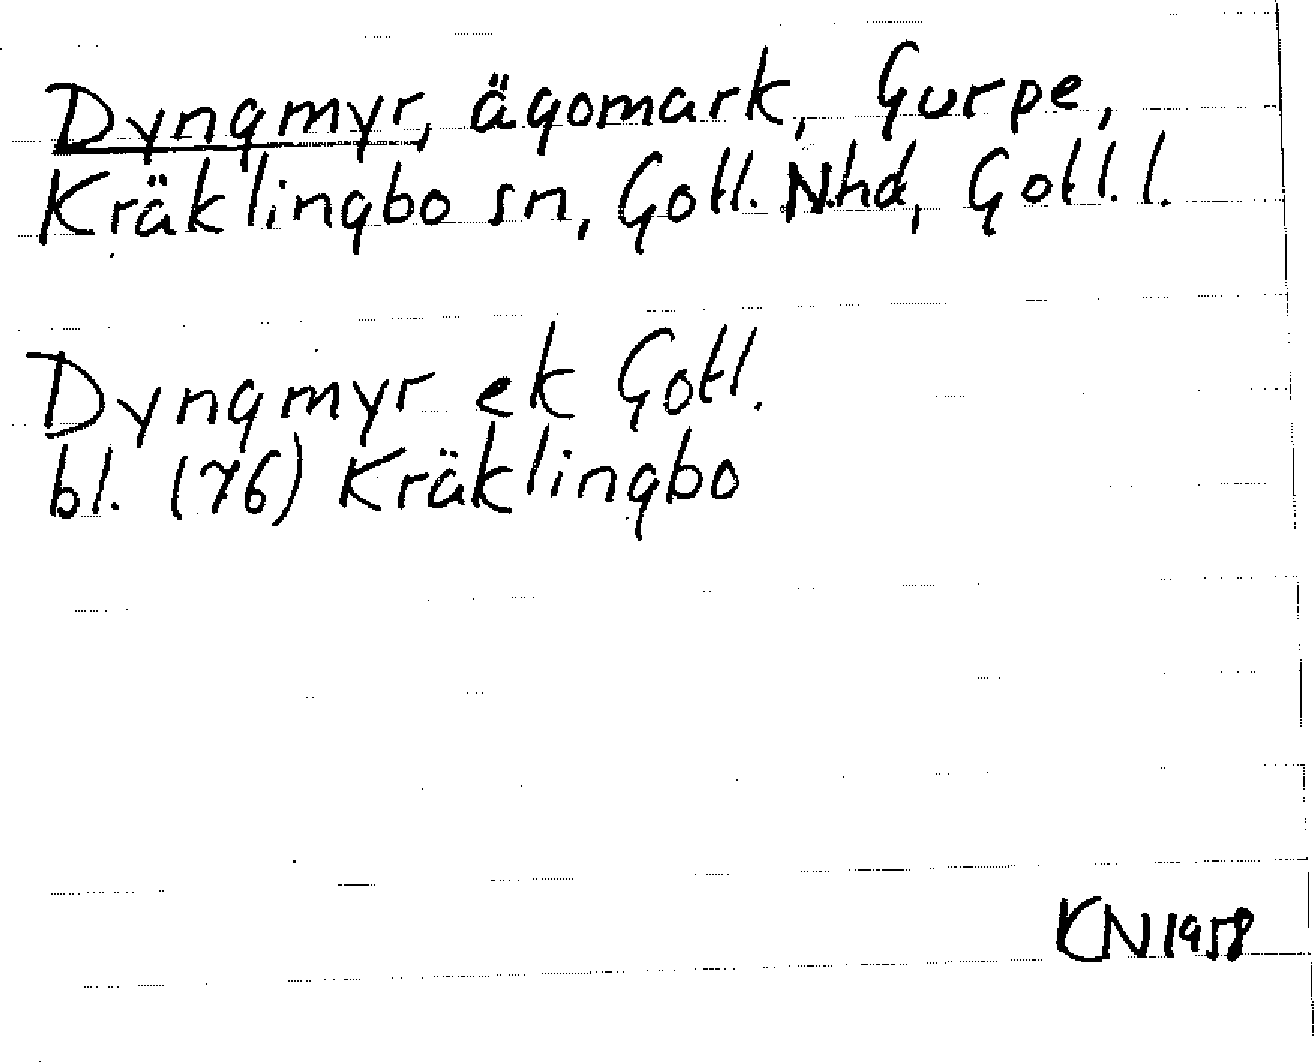 Dyngmyr, ägomark, Gurpe,
Kräklingbo sn, Gotl. N.hd, Gotl. l.
Dyngmyr ek Gotl.
bl. (76) Kräklingbo
KN 1958